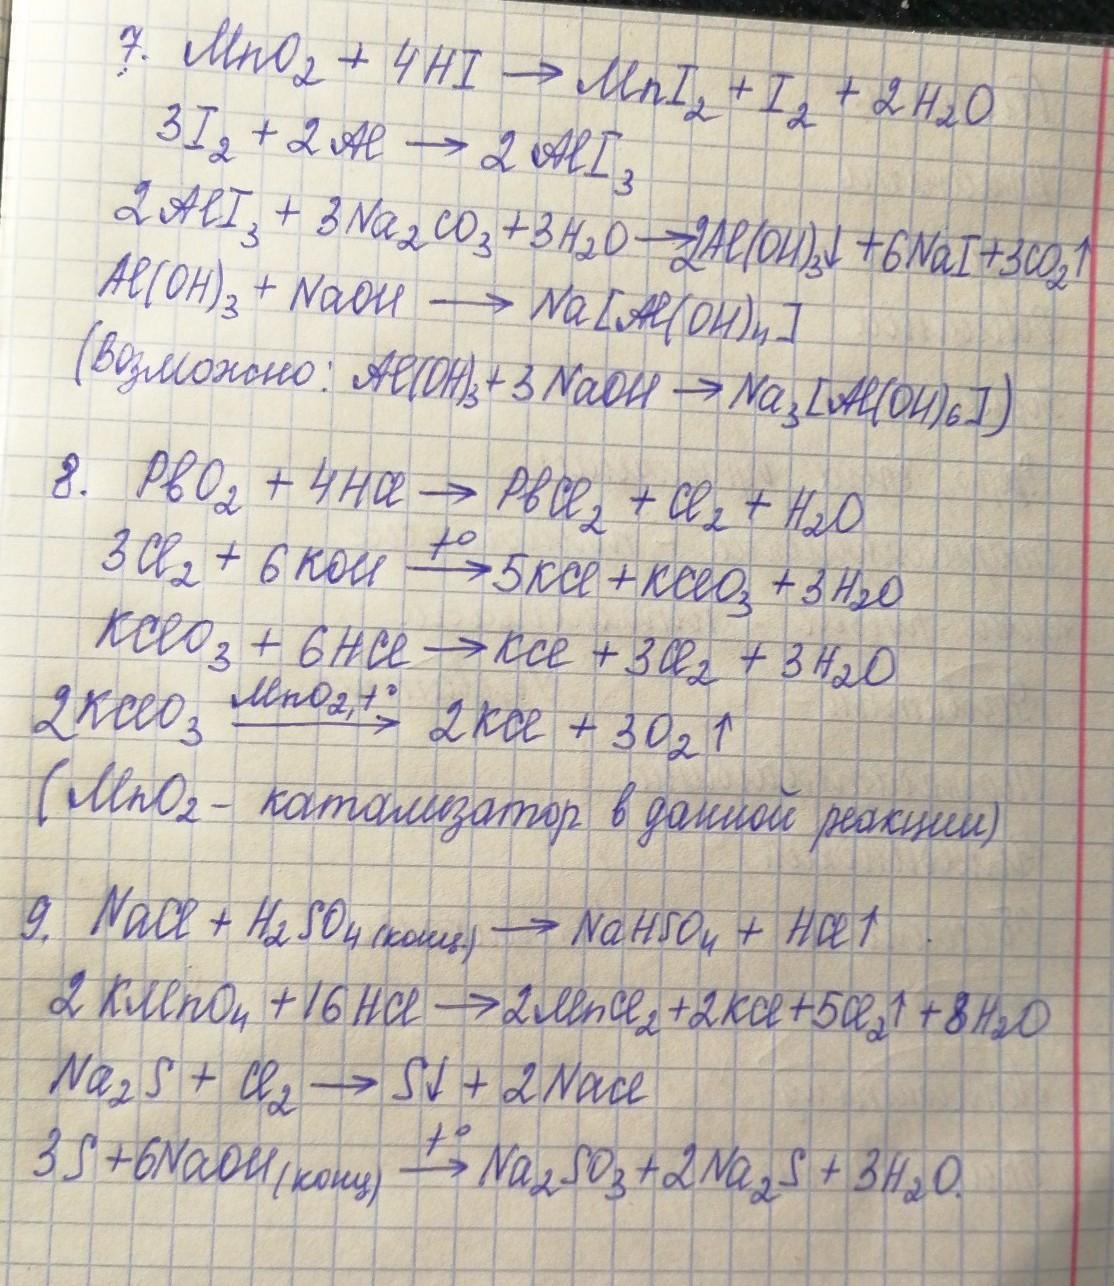 7. MnO₂ + 4HI → MnI₂ + I₂ + 2H₂O
3I₂ + 2Al → 2AlI₃
2AlI₃ + 3Na₂CO₃ + 3H₂O → 2Al(OH)₃↓ + 6NaI + 3CO₂↑
Al(OH)₃ + NaOH → Na[Al(OH)₄]
(Возможно: Al(OH)₃ + 3NaOH → Na₃[Al(OH)₆])
8. PbO₂ + 4HCl → PbCl₂ + Cl₂ + H₂O
3Cl₂ + 6KOH t°→ 5KCl + KClO₃ + 3H₂O
KClO₃ + 6HCl → KCl + 3Cl₂ + 3H₂O
2KClO₃ MnO₂, t°→ 2KCl + 3O₂↑
(MnO₂ - катализатор в данной реакции)
9. NaCl + H₂SO₄ (конц.) → NaHSO₄ + HCl↑
2KMnO₄ + 16HCl → 2MnCl₂ + 2KCl + 5Cl₂↑ + 8H₂O
Na₂S + Cl₂ → S↓ + 2NaCl
3S + 6NaOH (конц) t°→ Na₂SO₃ + 2Na₂S + 3H₂O.